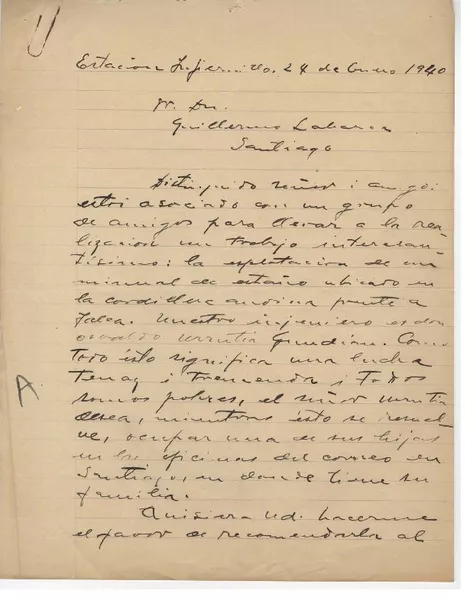 Estacion Infiernillo. 24 de Enero 1940
Sr. Dn.
Guillermo Labarca
Santiago
Distinguido señor i amigo:
estoi asociado con un grupo
de amigos para llevar a la rea-
lizacion un trabajo interesan-
tísimo: la esplotacion de un
mineral de estaño ubicado en
la cordillera andina frente a
Talca. Nuestro injeniero es don
Osvaldo Urrutia. Como
todo ésto significa una lucha
tenaz i tremenda i todos
somos pobres, el señor Urrutia
desea, mientras ésto se resuel-
ve, ocupar una de sus hijas
en las oficinas del correo en
Santiago, en donde tiene su
familia.
Quisiera Ud. hacerme
el favor de recomendarla al
A